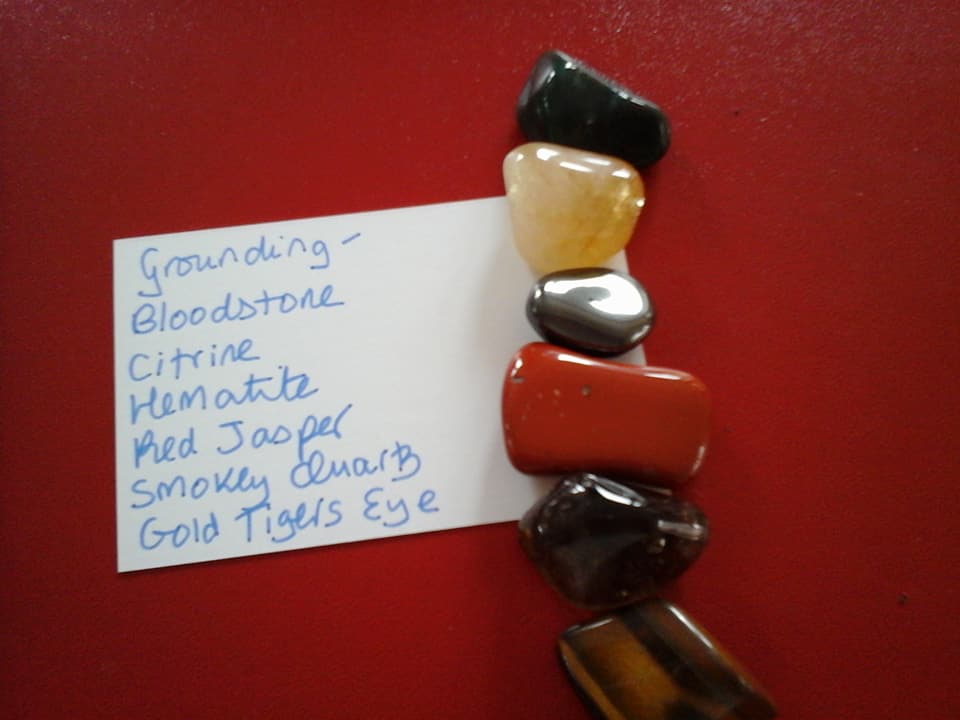 Grounding -
Bloodstone
Citrine
Hematite
Red Jasper
Smokey Quartz
Gold Tigers Eye